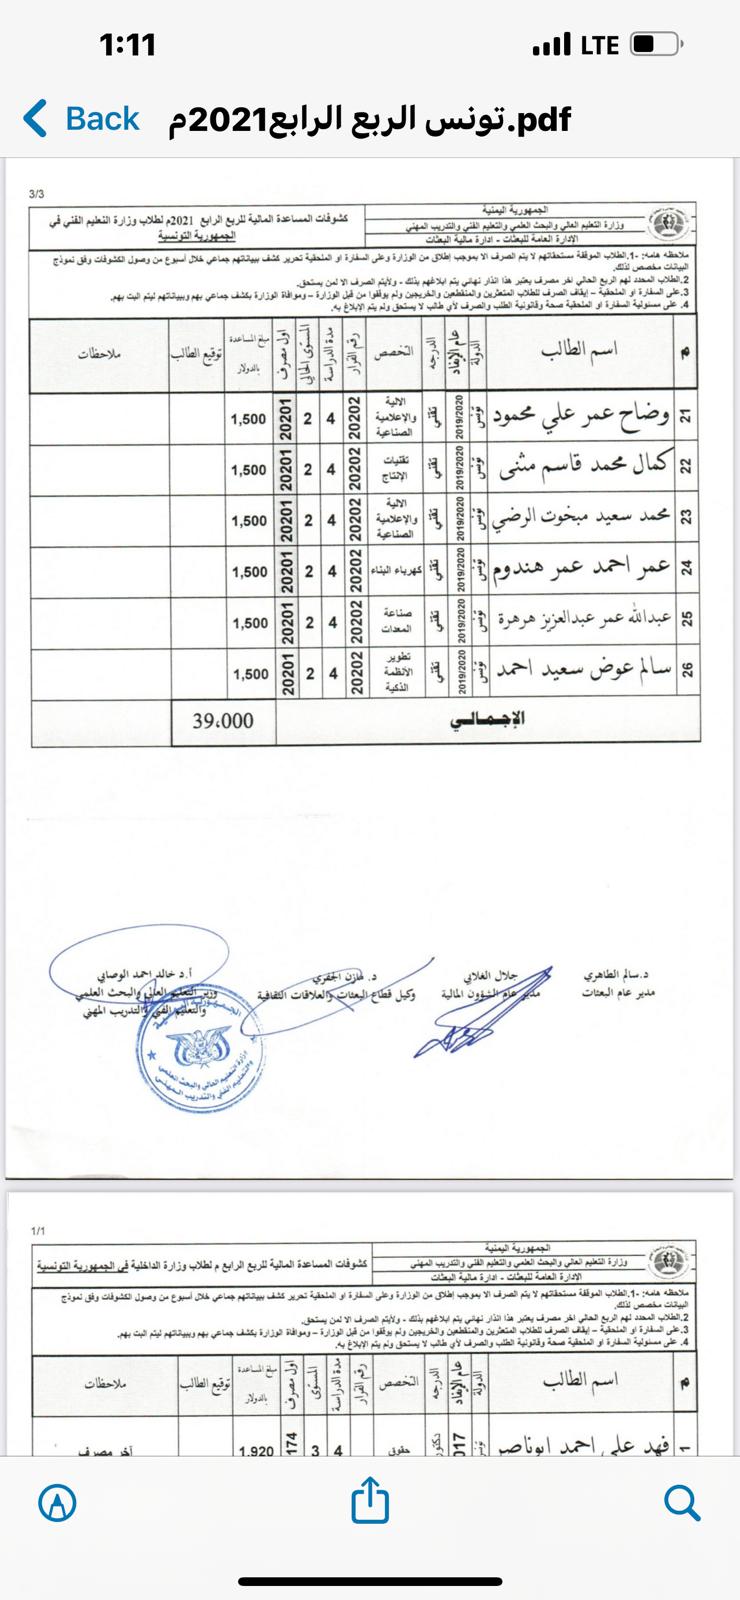 1:11
LTE
Back
تونس الربع الرابع2021م.pdf
3/3
الجمهورية اليمنية
وزارة التعليم العالي والبحث العلمي والتعليم الفني والتدريب المهني
الإدارة العامة للبعثات - ادارة مالية البعثات
كشوفات المساعدة المالية للربع الرابع 2021م لطلاب وزارة التعليم الفني في
الجمهورية التونسية
ملاحظه هامه: -1.الطلاب الموقفة مستحقاتهم لا يتم الصرف الا بموجب إطلاق من الوزارة وعلى السفارة او الملحقية تحرير كشف ببياناتهم جماعي خلال أسبوع من وصول الكشوفات وفق نموذج
البيانات مخصص لذلك.
2.الطلاب المحدد لهم الربع الحالي اخر مصرف يعتبر هذا انذار نهائي يتم ابلاغهم بذلك - ولايتم الصرف الا لمن يستحق.
3.على السفارة او الملحقية – إيقاف الصرف للطلاب المتعثرين والمنقطعين والخريجين ولم يوقفوا من قبل الوزارة – وموافاة الوزارة بكشف جماعي بهم وبياناتهم ليتم البت بهم.
4. على مسئولية السفارة او الملحقية صحة وقانونية الطلب والصرف لأي طالب لا يستحق ولم يتم الإبلاغ به.
م اسم الطالب الدولة عام الإيفاد الدرجه التخصص رقم القرار مدة الدراسة المستوى الحالي اول مصرف مبلغ المساعدة بالدولار توقيع الطالب ملاحظات
21 وضاح عمر علي محمود تونس 2019/2020 تقني الالية والإعلامية الصناعية 20202 4 2 20201 1,500
22 كمال محمد قاسم مثنى تونس 2019/2020 تقني تقنيات الإنتاج 20202 4 2 20201 1,500
23 محمد سعيد مبخوت الرضي تونس 2019/2020 تقني الالية والإعلامية الصناعية 20202 4 2 20201 1,500
24 عمر احمد عمر هندوم تونس 2019/2020 تقني كهرباء البناء 20202 4 2 20201 1,500
25 عبدالله عمر عبدالعزيز هرهرة تونس 2019/2020 تقني صناعة المعدات 20202 4 2 20201 1,500
26 سالم عوض سعيد احمد تونس 2019/2020 تقني تطوير الأنظمة الذكية 20202 4 2 20201 1,500
الإجمالي 39،000
د.سالم الطاهري
مدير عام البعثات
جلال الغلابي
مدير عام الشؤون المالية
د. مازن الجفري
وكيل قطاع البعثات والعلاقات الثقافية
أ.د خالد احمد الوصابي
وزير التعليم العالي والبحث العلمي
والتعليم الفني والتدريب المهني
الجمهورية اليمنية
وزارة التعليم العالي والبحث العلمي
والتعليم الفني والتدريب المهني
1/1
الجمهورية اليمنية
وزارة التعليم العالي والبحث العلمي والتعليم الفني والتدريب المهني
الإدارة العامة للبعثات - ادارة مالية البعثات
كشوفات المساعدة المالية للربع الرابع م لطلاب وزارة الداخلية في الجمهورية التونسية
ملاحظه هامه: -1.الطلاب الموقفة مستحقاتهم لا يتم الصرف الا بموجب إطلاق من الوزارة وعلى السفارة او الملحقية تحرير كشف ببياناتهم جماعي خلال أسبوع من وصول الكشوفات وفق نموذج
البيانات مخصص لذلك.
2.الطلاب المحدد لهم الربع الحالي اخر مصرف يعتبر هذا انذار نهائي يتم ابلاغهم بذلك - ولايتم الصرف الا لمن يستحق.
3.على السفارة او الملحقية – إيقاف الصرف للطلاب المتعثرين والمنقطعين والخريجين ولم يوقفوا من قبل الوزارة – وموافاة الوزارة بكشف جماعي بهم وببياناتهم ليتم البت بهم.
4. على مسئولية السفارة او الملحقية صحة وقانونية الطلب والصرف لأي طالب لا يستحق ولم يتم الإبلاغ به.
م اسم الطالب الدولة عام الإيفاد الدرجه التخصص رقم القرار مدة الدراسة المستوى اول مصرف مبلغ المساعدة بالدولار توقيع الطالب ملاحظات
1 فهد علي احمد ابوناصر حقوق 4 3 1,920 آخر مصرف